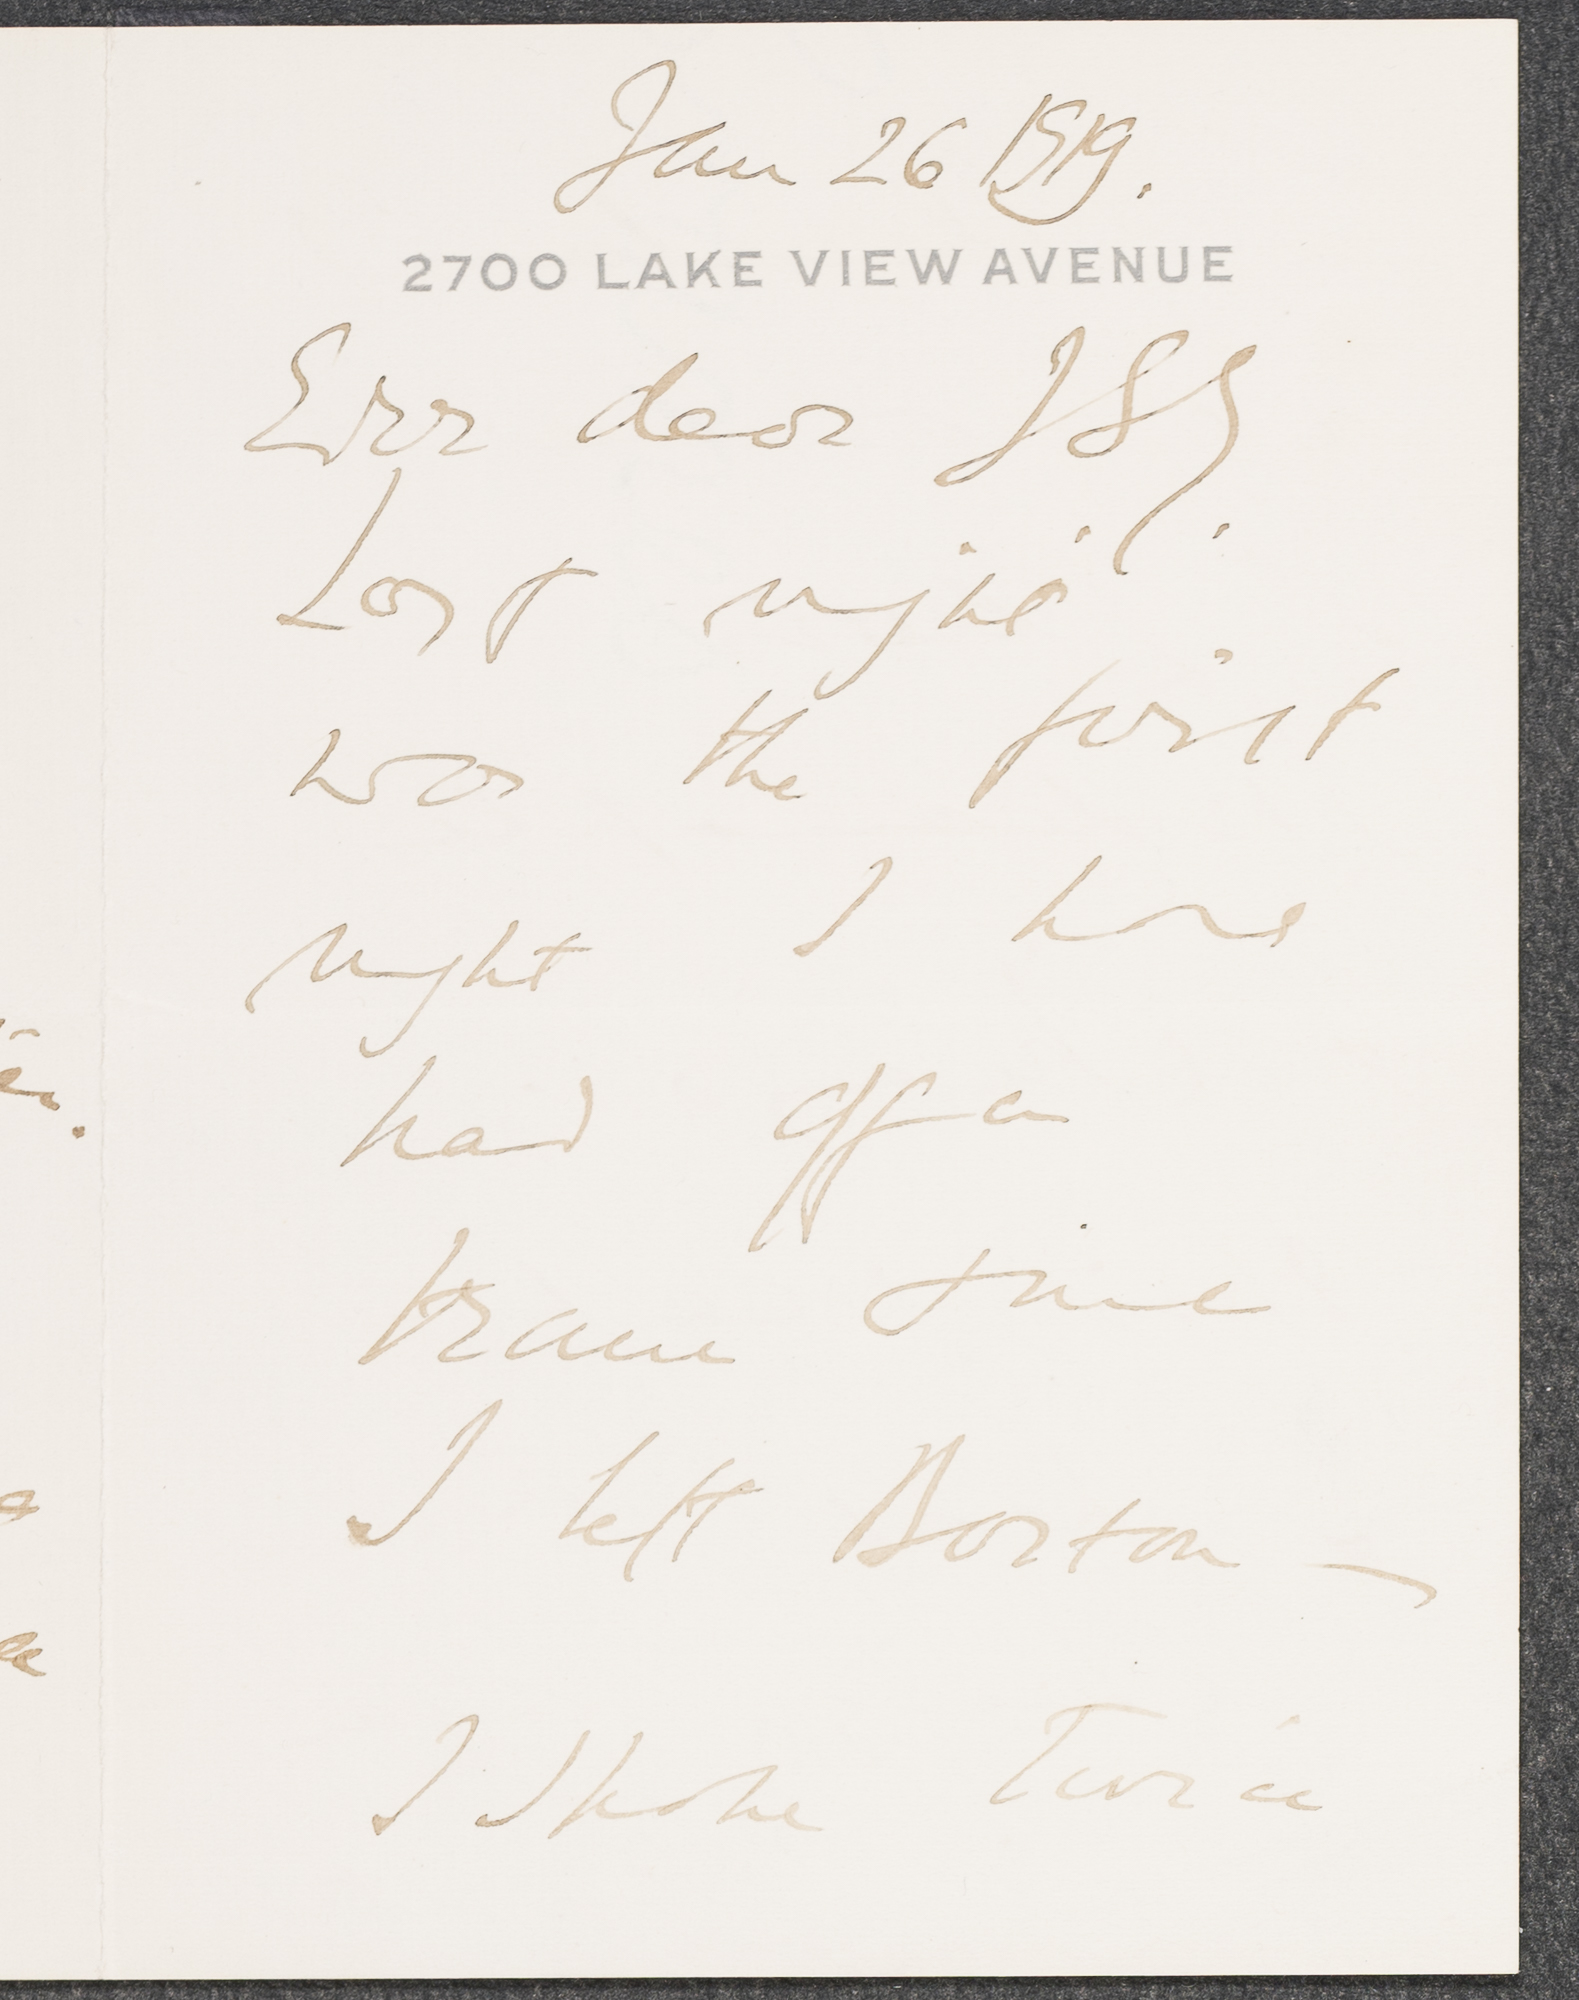 Jan 26 1919.
2700 LAKE VIEW AVENUE
Ever dear
Last night
was the first
night I have
had off a
train since
I left Boston —
I spoke Twice